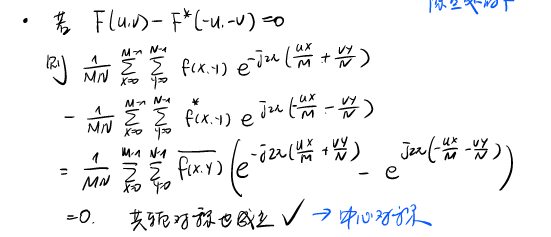 • 若 F(u,v) - F*(-u,-v) = 0
则 1/MN Σ_{x=0}^{M-1} Σ_{y=0}^{N-1} f(x,y) e^{-j2π(ux/M + vy/N)}
- 1/MN Σ_{x=0}^{M-1} Σ_{y=0}^{N-1} f*(x,y) e^{j2π(-ux/M - vy/N)}
= 1/MN Σ_{x=0}^{M-1} Σ_{y=0}^{N-1} \overline{f(x,y)} (e^{-j2π(ux/M + vy/N)} - e^{j2π(-ux/M - vy/N)})
=0. 共轭对称也成立 ✓ → 中心对称